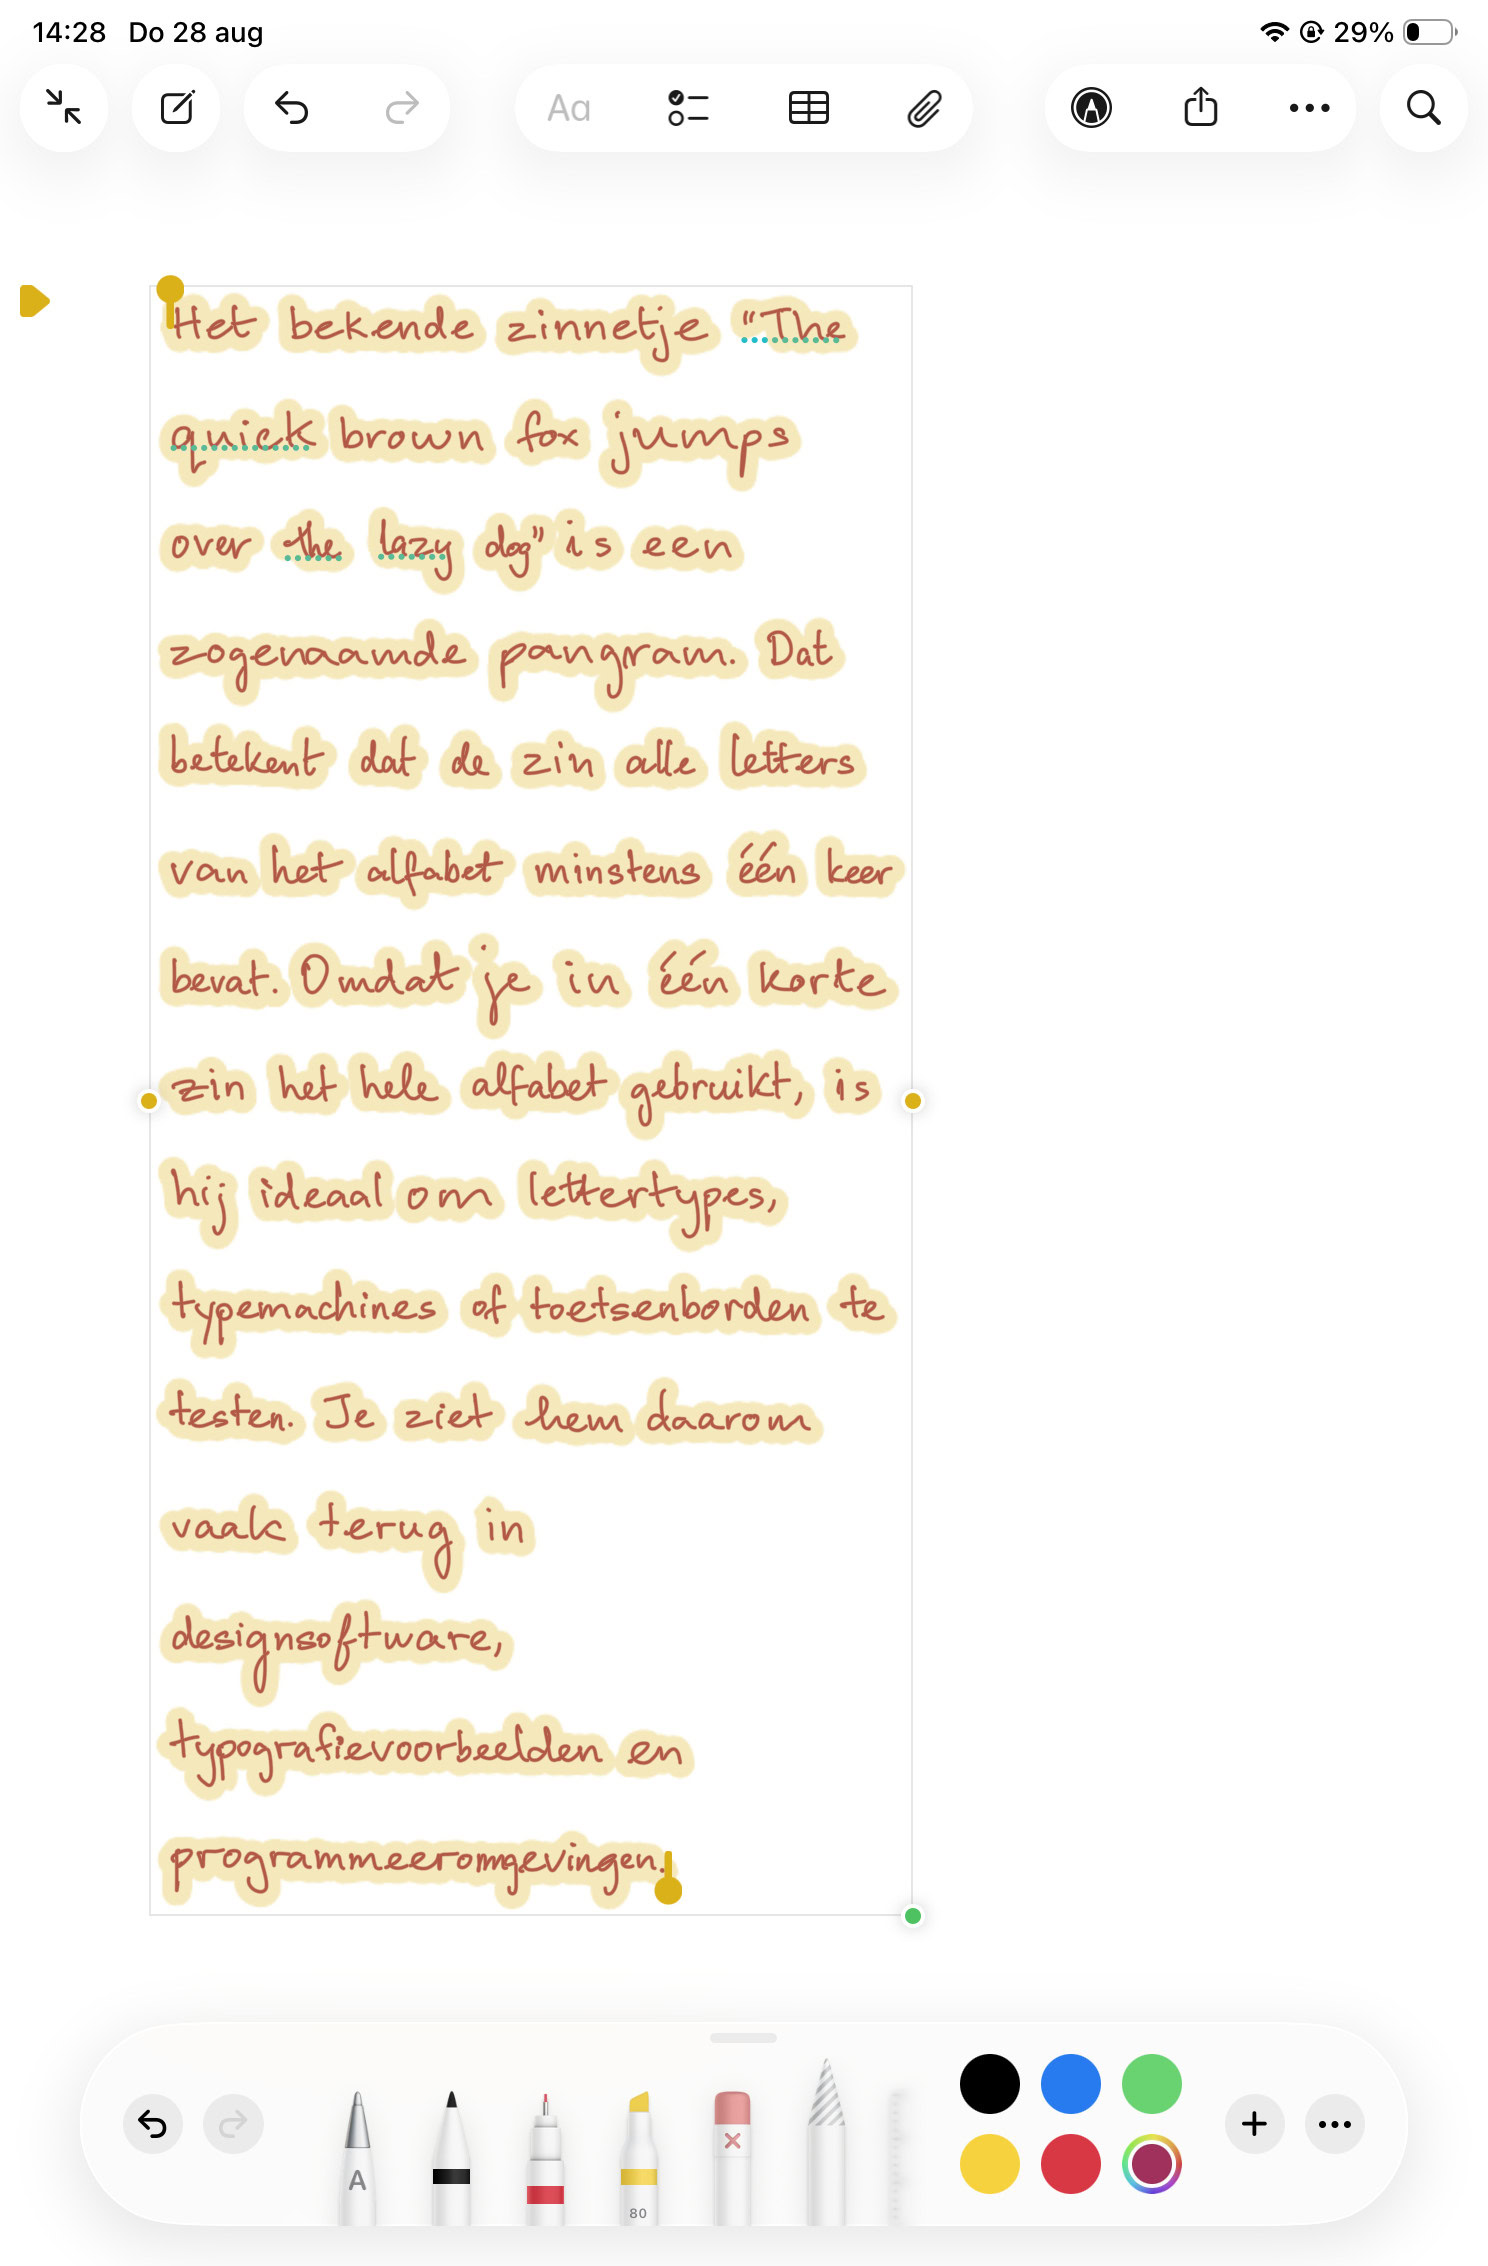 14:28 Do 28 aug 29%
Aa
Het bekende zinnetje "The
quick brown fox jumps
over the lazy dog" is een
zogenaamde pangram. Dat
betekent dat de zin alle letters
van het alfabet minstens één keer
bevat. Omdat je in één korte
zin het hele alfabet gebruikt, is
hij ideaal om lettertypes,
typemachines of toetsenborden te
testen. Je ziet hem daarom
vaak terug in
designsoftware,
typografievoorbeelden en
programmeeromgevingen.
A
80